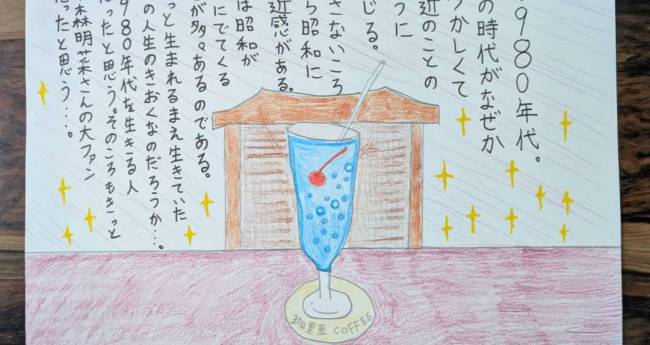 980年代。
の時代がなぜか
つかしくて
近のことの
うに
じる。
さないころ
ら昭和に
近感がある。
は昭和が
にでてくる
が多々あるのである。
っと生まれるまえ生きていた
の人生のきおくなのだろうか…。
980年代を生きる人
ったと思う。そのころもきっと
森明菜さんの大ファン
ったと思う…。
COFFEE